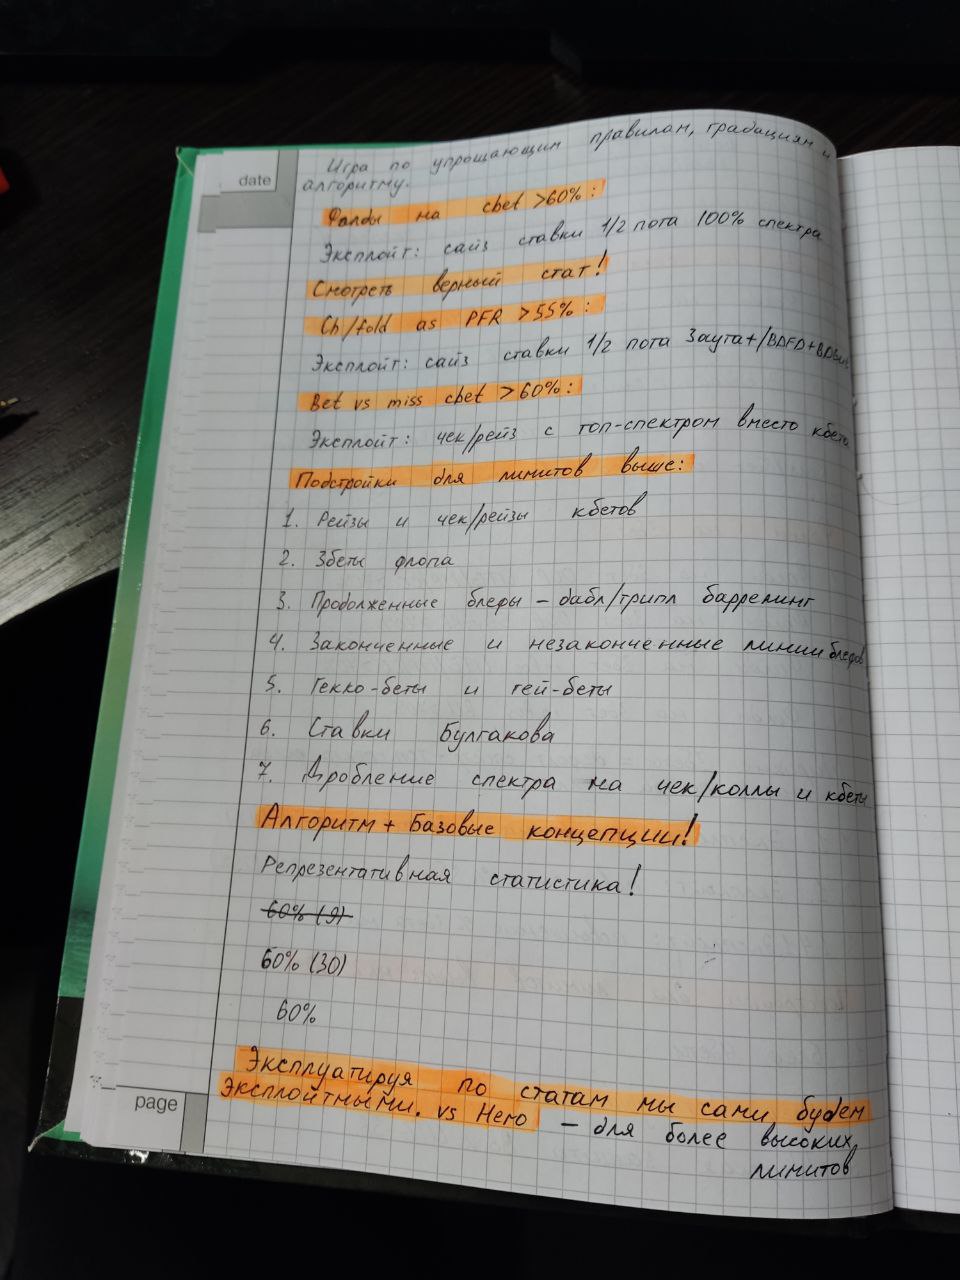 date
Игра по упрощающим правилам, градациям и
алгоритму.
Фолды на cbet >60% :
Эксплойт: сайз ставки 1/2 пота 100% спектра
Смотреть верный стат!
Ch/fold as PFR >55% :
Эксплойт: сайз ставки 1/2 пота 3аута+/BDFD+
Bet vs miss cbet >60% :
Эксплойт: чек/рейз с топ-спектром вместо кбета
Подстройки для лимитов выше:
1. Рейзы и чек/рейзы кбетов
2. 3беты флопа
3. Продолженные блефы – дабл/трипл баррелинг
4. Законченные и незаконченные линии блефов
5. Гекко-беты и гей-беты
6. Ставки Булгакова
7. Дробление спектра на чек/коллы и кбеты
Алгоритм + Базовые концепции!
Репрезентативная статистика!
60% (9)
60% (30)
60%
Эксплуатируя по статам мы сами будем
эксплойтными. vs Hero – для более высоких
лимитов
page